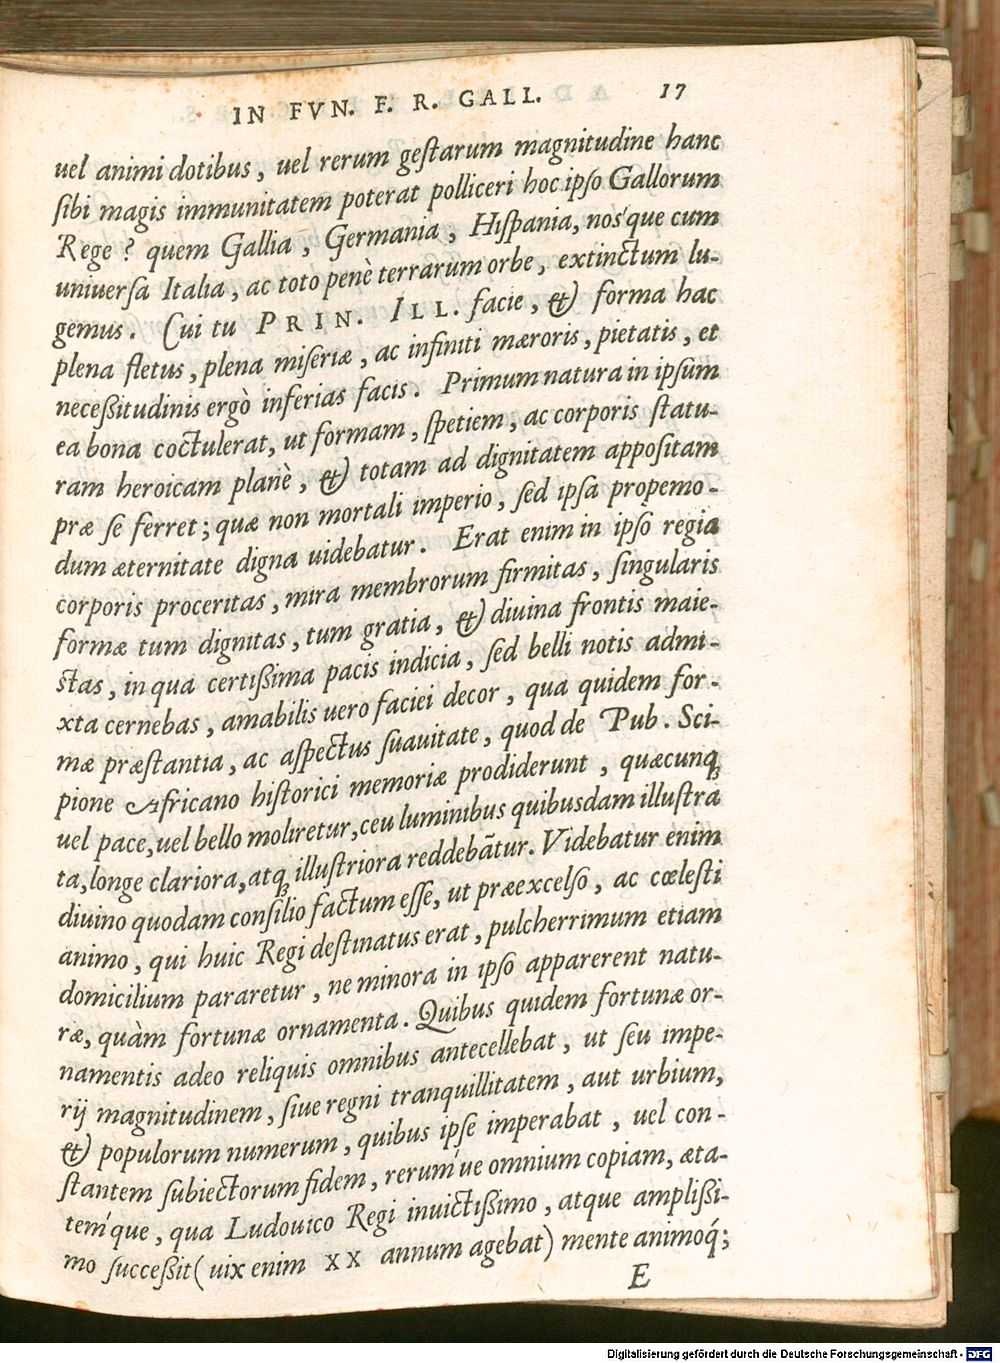 IN FVN. F. R. GALL. 17
uel animi dotibus, uel rerum gestarum magnitudine hanc
sibi magis immunitatem poterat polliceri hoc ipso Gallorum
Rege? quem Gallia, Germania, Hispania, nos'que cum
uniuersa Italia, ac toto penè terrarum orbe, extinctum lu-
gemus. Cui tu PRIN. ILL. facie, & forma hac
plena fletus, plena miseriæ, ac infiniti mæroris, pietatis, et
necessitudinis ergò inferias facis. Primum natura in ipsum
ea bona coctulerat, ut formam, spetiem, ac corporis statu-
ram heroicam planè, & totam ad dignitatem appositam
præ se ferret; quæ non mortali imperio, sed ipsa propemo-
dum æternitate digna uidebatur. Erat enim in ipso regia
corporis proceritas, mira membrorum firmitas, singularis
formæ tum dignitas, tum gratia, & diuina frontis maie-
stas, in qua certissima pacis indicia, sed belli notis admi-
xta cernebas, amabilis uero faciei decor, qua quidem for-
mæ præstantia, ac aspectus suauitate, quod de Pub. Sci-
pione Africano historici memoriæ prodiderunt, quæcunq;
uel pace, uel bello moliretur, ceu luminibus quibusdam illustra
ta, longe clariora, atq; illustriora reddebãtur. Videbatur enim
diuino quodam consilio factum esse, ut præexcelso, ac cœlesti
animo, qui huic Regi destinatus erat, pulcherrimum etiam
domicilium pararetur, ne minora in ipso apparerent natu-
ræ, quàm fortunæ ornamenta. Quibus quidem fortunæ or-
namentis adeo reliquis omnibus antecellebat, ut seu impe-
rij magnitudinem, siue regni tranquillitatem, aut urbium,
& populorum numerum, quibus ipse imperabat, uel con-
stantem subiectorum fidem, rerum'ue omnium copiam, æta-
tem'que, qua Ludouico Regi inuictissimo, atque amplissi-
mo successit (uix enim XX annum agebat) mente animoq́;
E
Digitalisierung gefördert durch die Deutsche Forschungsgemeinschaft - DFG